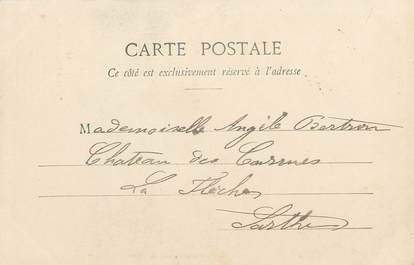 CARTE POSTALE
Ce côté est exclusivement réservé à l'adresse
Mademoiselle Angèle Bertron
Chateau des Carmes
La Flèche
Sarthe